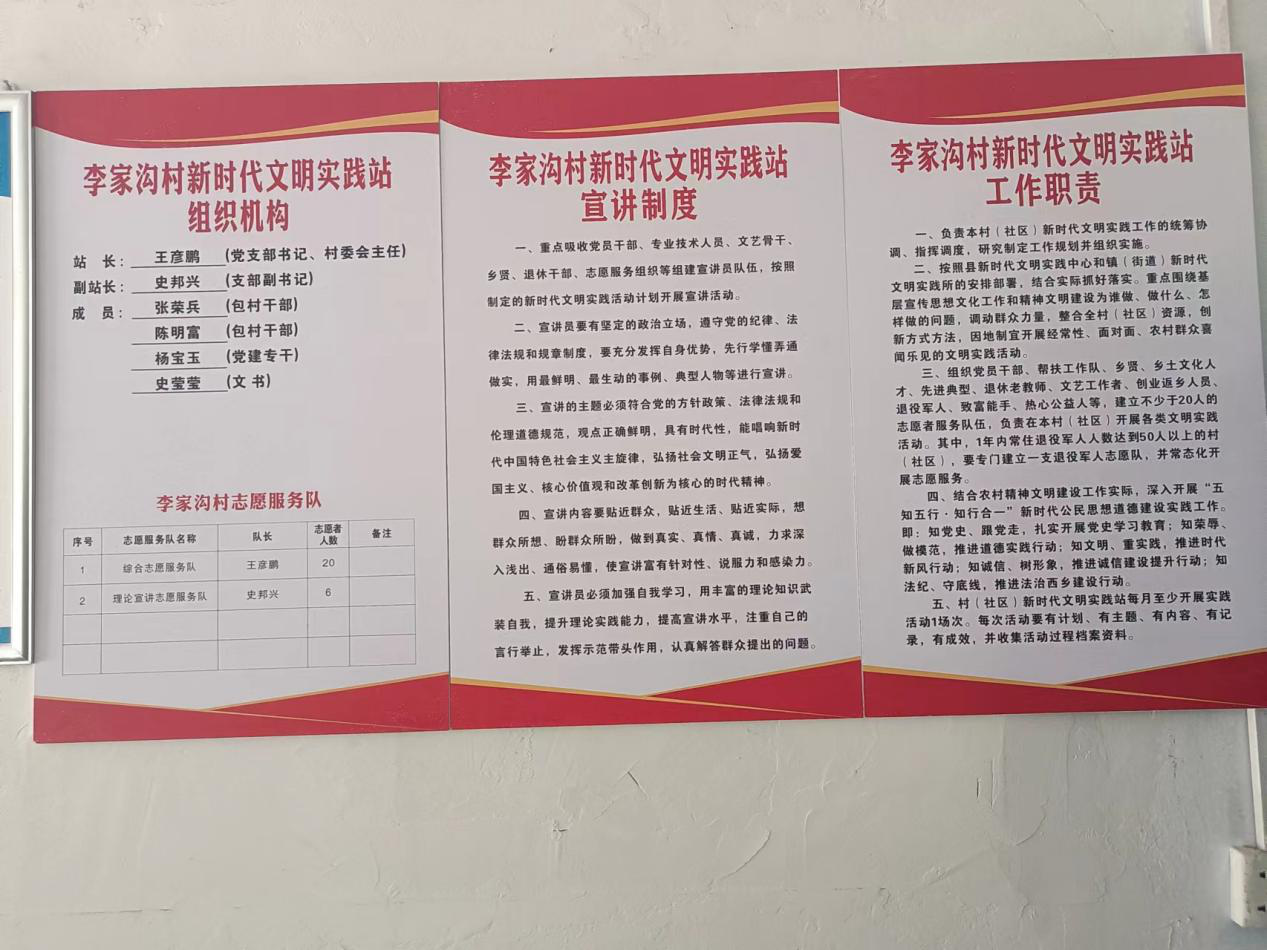 李家沟村新时代文明实践站
组织机构
站 长： 王彦鹏 (党支部书记、村委会主任)
副站长： 史邦兴 (支部副书记)
成 员： 张荣兵 (包村干部)
陈明富 (包村干部)
杨宝玉 (党建专干)
史莹莹 (文 书)
李家沟村志愿服务队
序号 志愿服务队名称 队长 志愿者人数 备注
1 综合志愿服务队 王彦鹏 20
2 理论宣讲志愿服务队 史邦兴 6
李家沟村新时代文明实践站
宣讲制度
一、重点吸收党员干部、专业技术人员、文艺骨干、
乡贤、退休干部、志愿服务组织等组建宣讲员队伍，按照
制定的新时代文明实践活动计划开展宣讲活动。
二、宣讲员要有坚定的政治立场，遵守党的纪律、法
律法规和规章制度，要充分发挥自身优势，先行学懂弄通
做实，用最鲜明、最生动的事例、典型人物等进行宣讲。
三、宣讲的主题必须符合党的方针政策、法律法规和
伦理道德规范，观点正确鲜明，具有时代性，能唱响新时
代中国特色社会主义主旋律，弘扬社会文明正气，弘扬爱
国主义、核心价值观和改革创新为核心的时代精神。
四、宣讲内容要贴近群众，贴近生活、贴近实际，想
群众所想、盼群众所盼，做到真实、真情、真诚，力求深
入浅出、通俗易懂，使宣讲富有针对性、说服力和感染力。
五、宣讲员必须加强自我学习，用丰富的理论知识武
装自我，提升理论实践能力，提高宣讲水平，注重自己的
言行举止，发挥示范带头作用，认真解答群众提出的问题。
李家沟村新时代文明实践站
工作职责
一、负责本村（社区）新时代文明实践工作的统筹协
调、指挥调度，研究制定工作规划并组织实施。
二、按照县新时代文明实践中心和镇（街道）新时代
文明实践所的安排部署，结合实际抓好落实。重点围绕基
层宣传思想文化工作和精神文明建设为谁做、做什么、怎
样做的问题，调动群众力量，整合全村（社区）资源，创
新方式方法，因地制宜开展经常性、面对面、农村群众喜
闻乐见的文明实践活动。
三、组织党员干部、帮扶工作队、乡贤、乡土文化人
才、先进典型、退休老教师、文艺工作者、创业返乡人员、
退役军人、致富能手、热心公益人等，建立不少于20人的
志愿者服务队伍，负责在本村（社区）开展各类文明实践
活动。其中，1年内常住退役军人人数达到50人以上的村
（社区），要专门建立一支退役军人志愿队，并常态化开
展志愿服务。
四、结合农村精神文明建设工作实际，深入开展“五
知五行·知行合一”新时代公民思想道德建设实践工作。
即：知党史、跟党走，扎实开展党史学习教育；知荣辱、
做模范，推进道德实践行动；知文明、重实践，推进时代
新风行动；知诚信、树形象，推进诚信建设提升行动；知
法纪、守底线，推进法治西乡建设行动。
五、村（社区）新时代文明实践站每月至少开展实践
活动1场次。每次活动要有计划、有主题、有内容、有记
录，有成效，并收集活动过程档案资料。